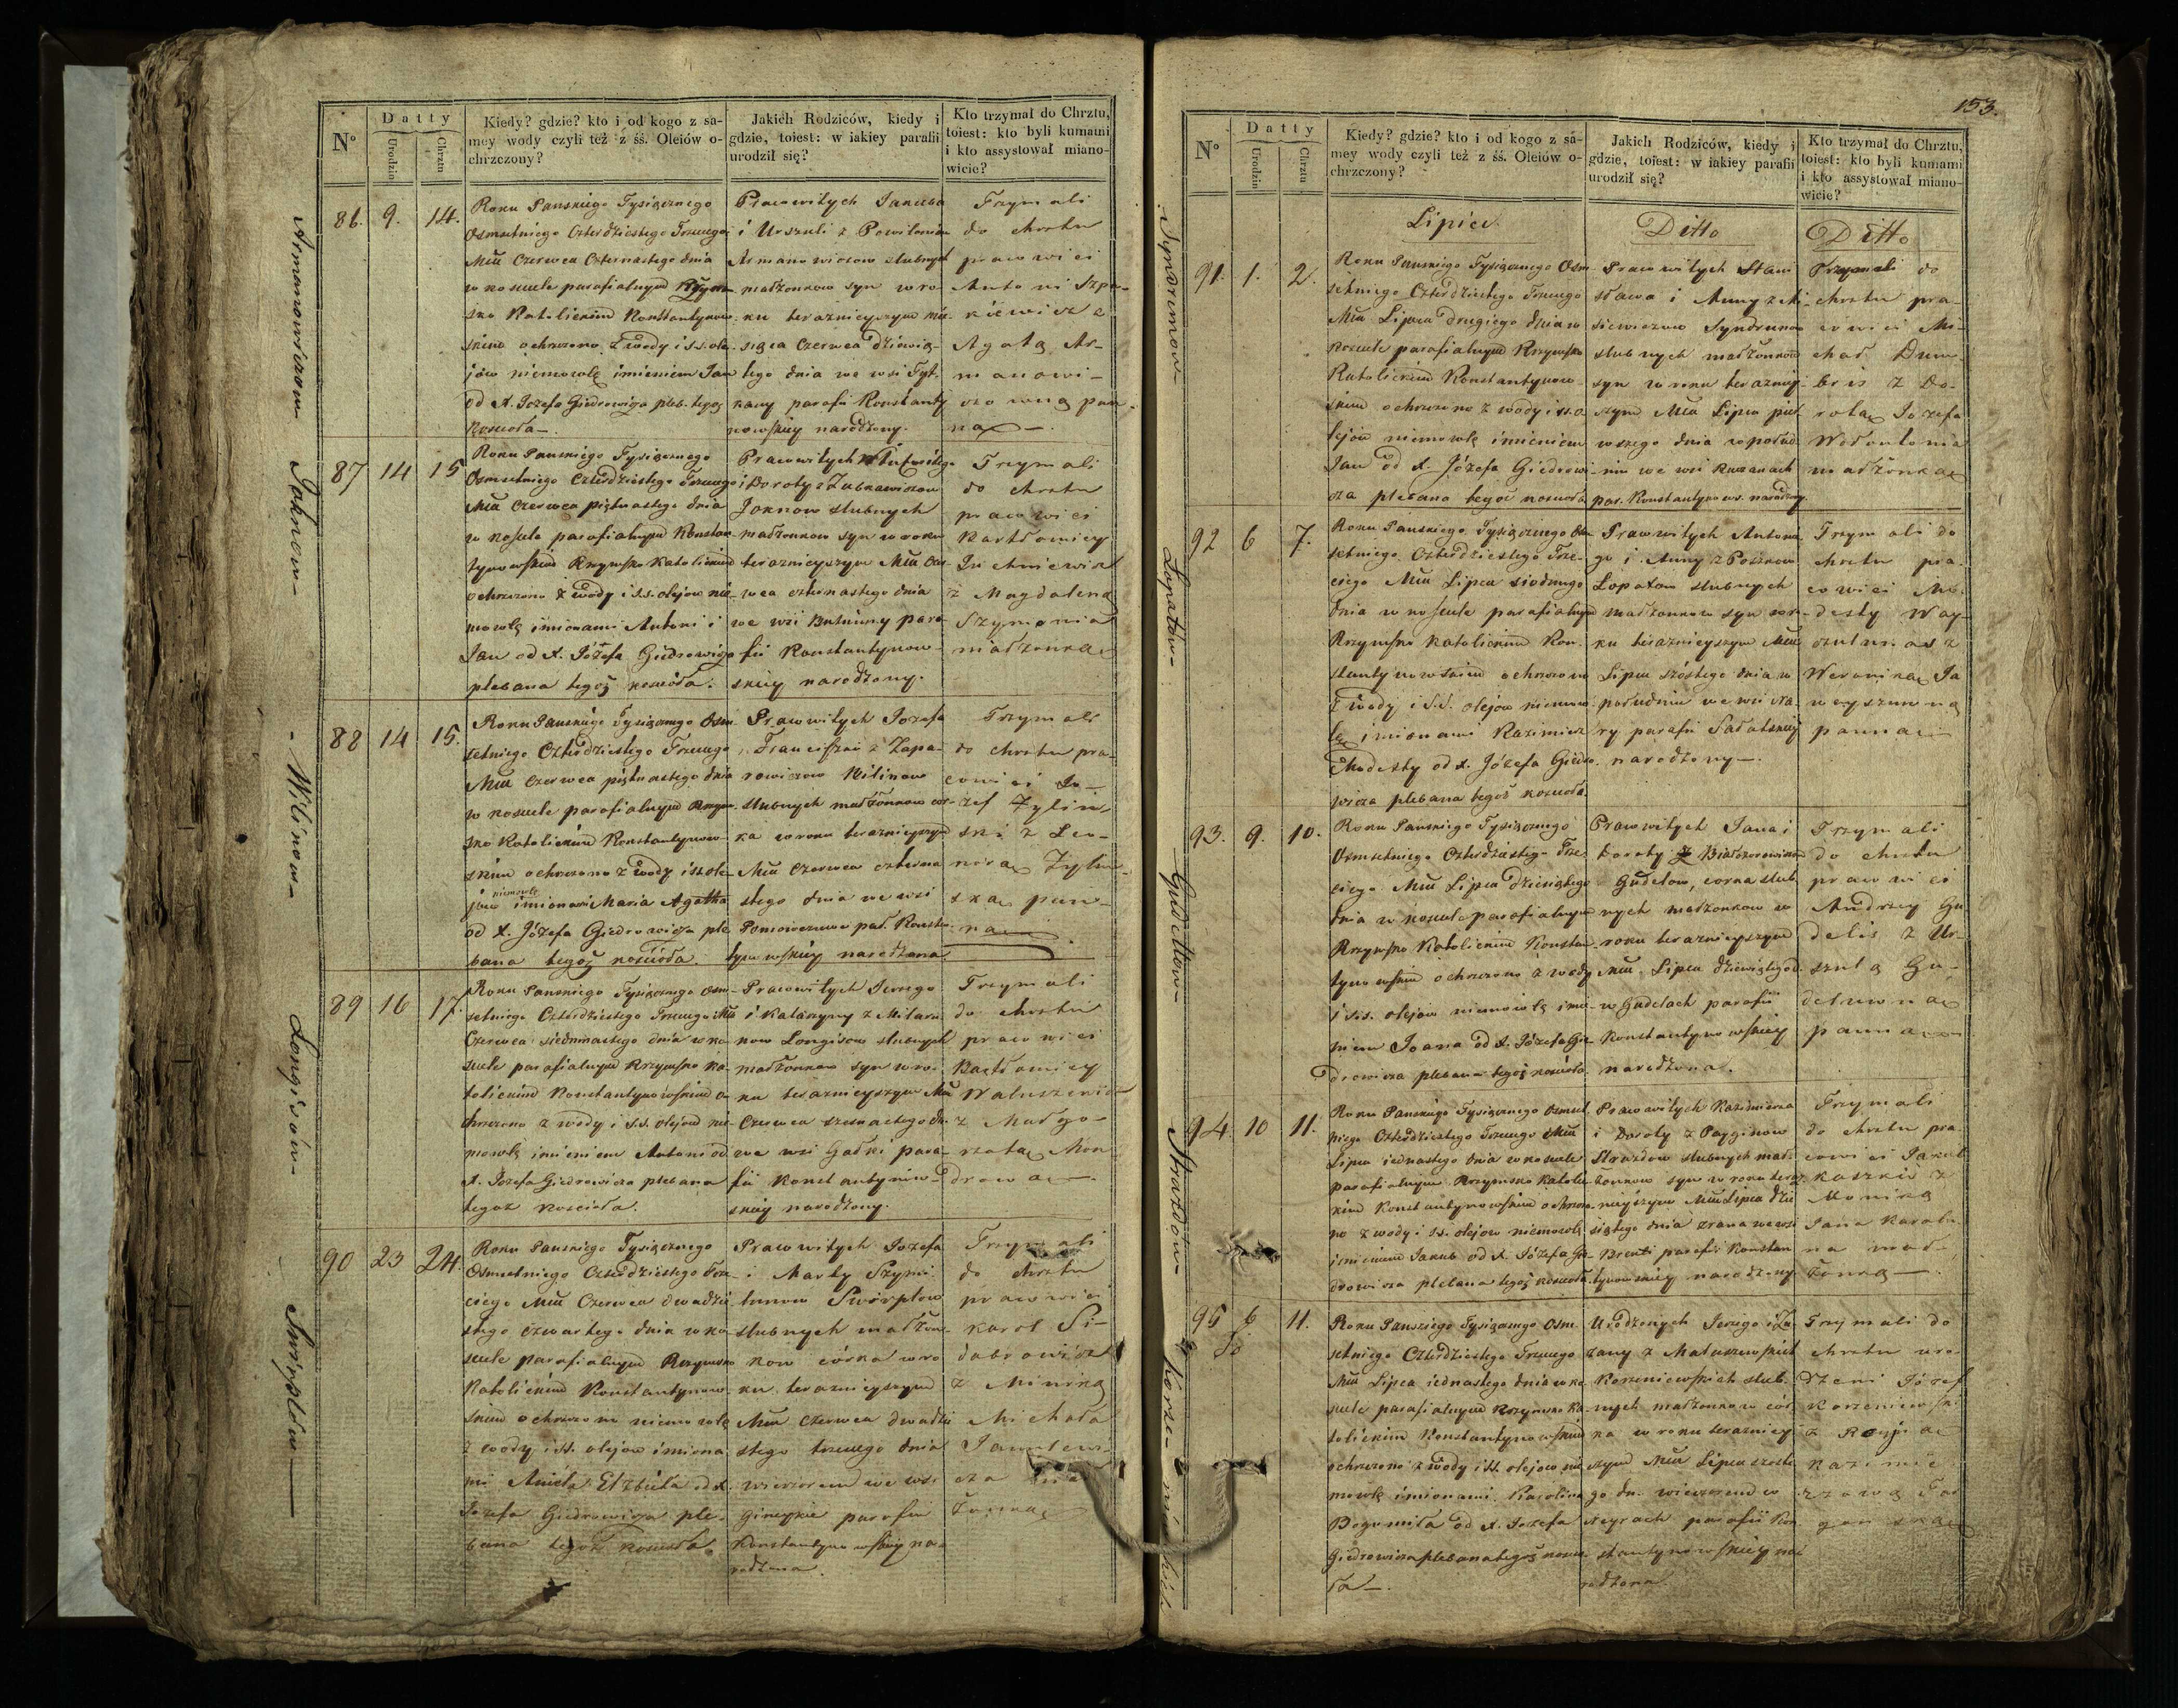 N°
Datty
Urodzin
Chrztu
Kiedy? gdzie? kto i od kogo z sa-
mey wody czyli też z śś. Oleiów o-
chrzczony?
Jakich Rodziców, kiedy i
gdzie, toiest: w iakiey parafii
urodził się?
Kto trzymał do Chrztu,
toiest: kto byli kumami
i kto assystował miano-
wicie?
Armanowiczow
86. 9. 14.
Roku Panskiego Tysiącznego
Osmsetniego Czterdziestego Trzeciego
Mca Czerwca Czternastego dnia
w kosciele parafialnym Rzym-
sko Katolickim Konstantynow-
skim ochrzczono z wody i s.s. ole-
jów niemowlę imieniem Jan
od X. Jozefa Giedrowicza pleb. tegoż
Koscioła.
Pracowitych Jakuba
i Urszuli z
Armanowiczow slubnych
małżonkow syn w ro-
ku teraznieyszym mie-
siąca Czerwca dziewią-
tego dnia we wsi
parafii Konstanty-
nowskiey narodzony.
Trzymali
do chrztu
pracowici
Antoni Szpa-
kiewicz z
Agatą Ar-
manowi-
czowną pan-
ną.
87 14 15
Roku Panskiego Tysiącznego
Osmsetniego Czterdziestego Trzeciego
Mca Czerwca piętnastego dnia
w kosciele parafialnym Konstan-
tynowskim Rzymsko Katolickim
ochrzczono z wody i s.s. olejow nie-
mowlę imionami Antoni i
Jan od X. Józefa Giedrowicza
plebana tegoż kosciola.
Pracowitych
i Doroty z
Joknow slubnych
małżonkow syn w roku
teraznieyszym Mca Czer-
wca czternastego dnia
we wsi para-
fii Konstantynow-
skiey narodzony.
Trzymali
do chrztu
pracowici
Bartłomiey
z Magdaleną
małżonką
Wilinow
88 14 15.
Roku Panskiego Tysiącznego Osm-
setniego Czterdziestego Trzeciego
Mca Czerwca piętnastego dnia
w kosciele parafialnym Rzym-
sko Katolickim Konstantynow-
skim ochrzczono z wody i s.s. ole-
jow niemowlę imionami Maria Agatha
od X. Józefa Giedrowicza ple-
bana tegoż kosciola.
Pracowitych Jozefa
i Franciszki z Zapa-
rowiczow Wilinow
slubnych małżonkow cor-
ka w roku teraznieyszym
Mca Czerwca czterna-
stego dnia we wsi
par. Konstan-
tynowskiey narodzona.
Trzymali
do chrztu pra-
cowici Jo-
zef Zylin-
ski z Leo-
norą Zylin-
ską pan-
ną
Longisów
89 16 17.
Roku Panskiego Tysiącznego Osm-
setniego Czterdziestego Trzeciego Mca
Czerwca siedmnastego dnia w ko-
sciele parafialnym Rzymsko Ka-
tolickim Konstantynowskim o-
chrzczono z wody i s.s. olejow nie-
mowlę imieniem Antoni od
X. Jozefa Giedrowicza plebana
tegoz kosciola.
Pracowitych Jerzego
i Katarzyny z
Longisow slubnych
małżonkow syn w ro-
ku teraznieyszym Mca
Czerwca szesnastego dn.
we wsi Gadki para-
fii Konstantynow-
skiey narodzony.
Trzymali
do chrztu
pracowici
Bartłomiey
z Małgo-
rzatą
Swirplów
90 23 24.
Roku Panskiego Tysiącznego
Osmsetniego Czterdziestego Trze-
ciego Mca Czerwca dwudzie-
stego czwartego dnia w ko-
sciele parafialnym Rzymsko
Katolickim Konstantynow-
skim ochrzczono niemowlę
z wody i s.s. olejow imiona-
mi Aniela Elzbieta od X.
Jozefa Giedrowicza ple-
bana tegoż kosciola.
Pracowitych Jozefa
i Marty Szymi-
tunow Swirplow
slubnych małżon-
kow córka w ro-
ku teraznieyszym
Mca Czerwca dwudzie-
stego trzeciego dnia
wieczorem we wsi
parafii
Konstantynowskiey na-
rodzona.
Trzymali
do chrztu
pracowici
Karol
z
Michała
żonką
153.
N°
Datty
Urodzin
Chrztu
Kiedy? gdzie? kto i od kogo z sa-
mey wody czyli też z śś. Oleiów o-
chrzczony?
Jakich Rodziców, kiedy i
gdzie, toiest: w iakiey parafii
urodził się?
Kto trzymał do Chrztu,
toiest: kto byli kumami
i kto assystował miano-
wicie?
Lipiec
Ditto
Ditto
Syndrunow
91. 1. 2.
Roku Panskiego Tysiącznego Osm-
setniego Czterdziestego Trzeciego
Mca Lipca drugiego dnia w
kosciele parafialnym Rzymsko
Katolickim Konstantynow-
skim ochrzczono z wody i s.s. o-
lejow niemowlę imieniem
Jan od X. Józefa Giedrowi-
cza plebana tegoż kosciola
Pracowitych Stani-
sława i Anny
Syndrunow
slubnych małżonkow
syn w roku teraznie-
szym Mca Lipca pier-
wszego dnia w połud-
niu we wsi
par. Konstantynows. narodzony.
Trzymali do
chrztu pra-
cowici Mi-
chał Dum-
bris z Do-
rotą Jozefa
małżonką
Łopatow
92 6 7.
Roku Panskiego Tysiącznego Osm-
setniego Czterdziestego Trze-
ciego Mca Lipca siodmego
dnia w kosciele parafialnym
Rzymsko Katolickim Kon-
stantynowskim ochrzczono
z wody i s.s. olejow niemow-
lę imionami Kazimierz
Modesty od X. Józefa Giedro-
wicza plebana tegoż kosciola.
Pracowitych Antonie-
go i Anny z
Łopatow slubnych
małżonkow syn w ro-
ku teraznieyszym Mca
Lipca szóstego dnia w
południu we wsi
parafii
narodzony.
Trzymali do
chrztu pra-
cowici Mo-
desty Way-
z
Weroniką
panną
Gudellow
93. 9. 10.
Roku Panskiego Tysiącznego
Osmsetniego Czterdziestego Trze-
ciego Mca Lipca dziesiątego
dnia w kosciele parafialnym
Rzymsko Katolickim Konstan-
tynowskim ochrzczono z wody
i s.s. olejow niemowlę imie-
niem Joana od X. Józefa Gie-
drowicza plebana tegoż kosciola.
Pracowitych Jana i
Doroty z
Gudelow, corka slub-
nych małżonkow w
roku teraznieyszym
Mca Lipca dziewiątego d.
w Gudelach parafii
Konstantynowskiey
narodzona.
Trzymali
do chrztu
pracowici
Andrzey Gu-
delis z Ur-
szulą Gu-
delowną
panną
Strazdow
94. 10 11.
Roku Panskiego Tysiącznego Osmset-
niego Czterdziestego Trzeciego Mca
Lipca iednastego dnia w kosciele
parafialnym Rzymsko Katolic-
kim Konstantynowskim ochrzczo-
no z wody i s.s. olejow niemowlę
imieniem Jakub od X. Józefa Gie-
drowicza plebana tegoż kosciola.
Pracowitych Kazimierza
i Doroty z
Strazdow slubnych mał-
żonkow syn w roku teraz-
nieyszym Mca Lipca dzie-
siątego dnia zrana we wsi
parafii Konstan-
tynowskiey narodzony
Trzymali
do chrztu pra-
cowici Jakub
z
Moniką
Jana
mał-
żonką.
95 6 11.
Roku Panskiego Tysiącznego Osm-
setniego Czterdziestego Trzeciego
Mca Lipca iednastego dnia w ko-
sciele parafialnym Rzymsko Ka-
tolickim Konstantynowskim
ochrzczono z wody i s.s. olejow nie-
mowlę imionami Karolina
Bogumiła od X. Jozefa
Giedrowicza plebana tegoż koscio-
ła.
Urodzonych Jerzego i Zu-
zany z Matuszewskich
Korzeniewskich slub-
nych małżonkow cór-
ka w roku terazniey-
szym Mca Lipca szoste-
go dn. wieczorem w
parafii Kon-
stantynowskiey na-
rodzona.
Trzymali do
chrztu uro-
dzeni Józef
Korzeniewski
z